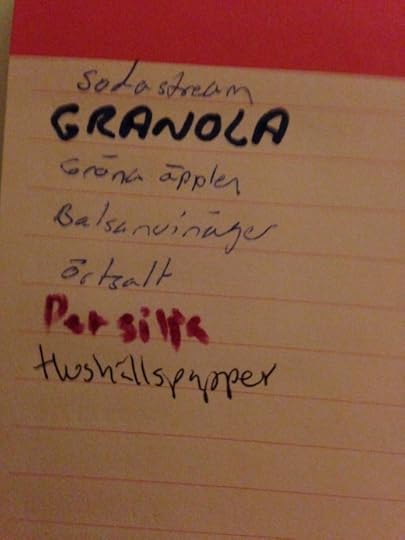 Sodastream
GRANOLA
Gröna äpplen
Balsamvinäger
Örtsalt
Persilja
Hushållspapper